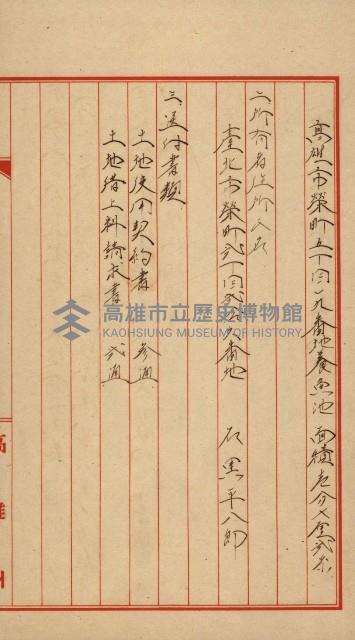 高雄市榮町五丁目一九番地養魚池 面積壱分七厘弐糸
二、所有者住所氏名
臺北市榮町弐丁目弐六番地 石黒平八郎
三、送付書類
土地使用契約書 参通
土地借上料請求書 弐通
高雄州
高雄市立歷史博物館
KAOHSIUNG MUSEUM OF HISTORY